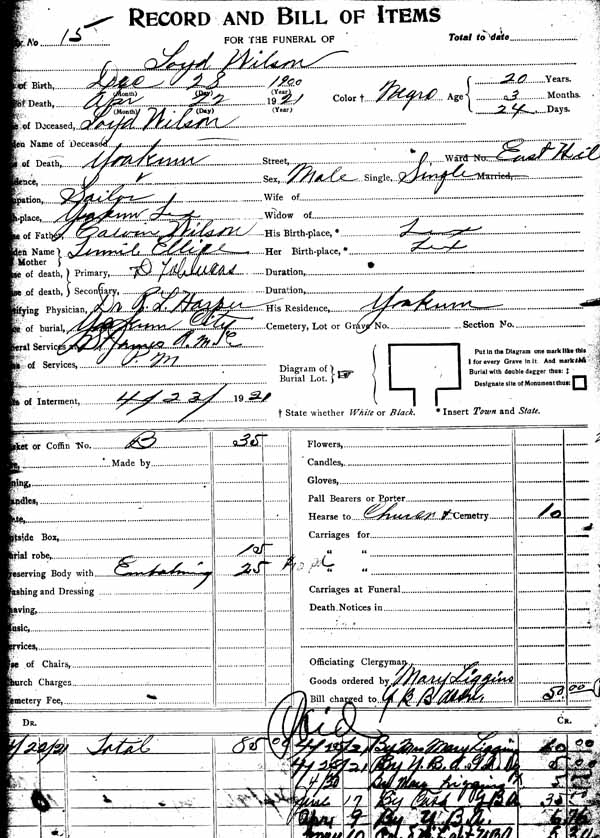 RECORD AND BILL OF ITEMS
No 15
FOR THE FUNERAL OF
Total to date
Loyd Wilson
of Birth, Dec 28 1900
(Month) (Day) (Year)
of Death, Apr 22 1921
(Month) (Day) (Year)
Color † Negro Age 20 Years.
3 Months.
24 Days.
of Deceased, Loyd Wilson
den Name of Deceased
of Death, Yoakum Street, Ward No. East Hil
dence, Sex, Male Single, Single Married,
upation, Sailor Wife of
h-place, Yoakum Tex Widow of
e of Father, Calvin Wilson His Birth-place, * Tex
den Name } Mother Ellige Her Birth-place, * Tex
se of death, } Primary, Duration,
se of death, } Secondary, Duration,
tifying Physician, Dr R. L. Harper His Residence, Yoakum
e of burial, Yoakum City Cemetery, Lot or Grave No. Section No.
eral Services at St James A. M. E
e of Services, P. M
Diagram of Burial Lot. }
Put in the Diagram one mark like this
I for every Grave in it. And mark the
Burial with double dagger thus: ‡
Designate site of Monument thus:
e of Interment, 4/23/ 1921
† State whether White or Black. * Insert Town and State.
sket or Coffin No. B 35 Flowers,
Made by Candles,
ning, Gloves,
andles, Pall Bearers or Porter
Hearse to Church & Cemetry 10
utside Box, Carriages for
urial robe, 15 " "
reserving Body with Embalming 25 " "
ashing and Dressing Carriages at Funeral
having, Death Notices in
usic,
ervices,
se of Chairs, Officiating Clergyman
hurch Charges Goods ordered by Mary Liggins
emetery Fee, Bill charged to 50 00
DR. Paid CR.
4/22/21 Total 85 00 4/25/21 By Mrs Mary Liggins 00
4/25/21 By U. B. A. 5 00
4/30 By Mary Liggins 5
June 17 By Cash U B A 35
Apr 9 By U. B. A. 6.76
10 U B A